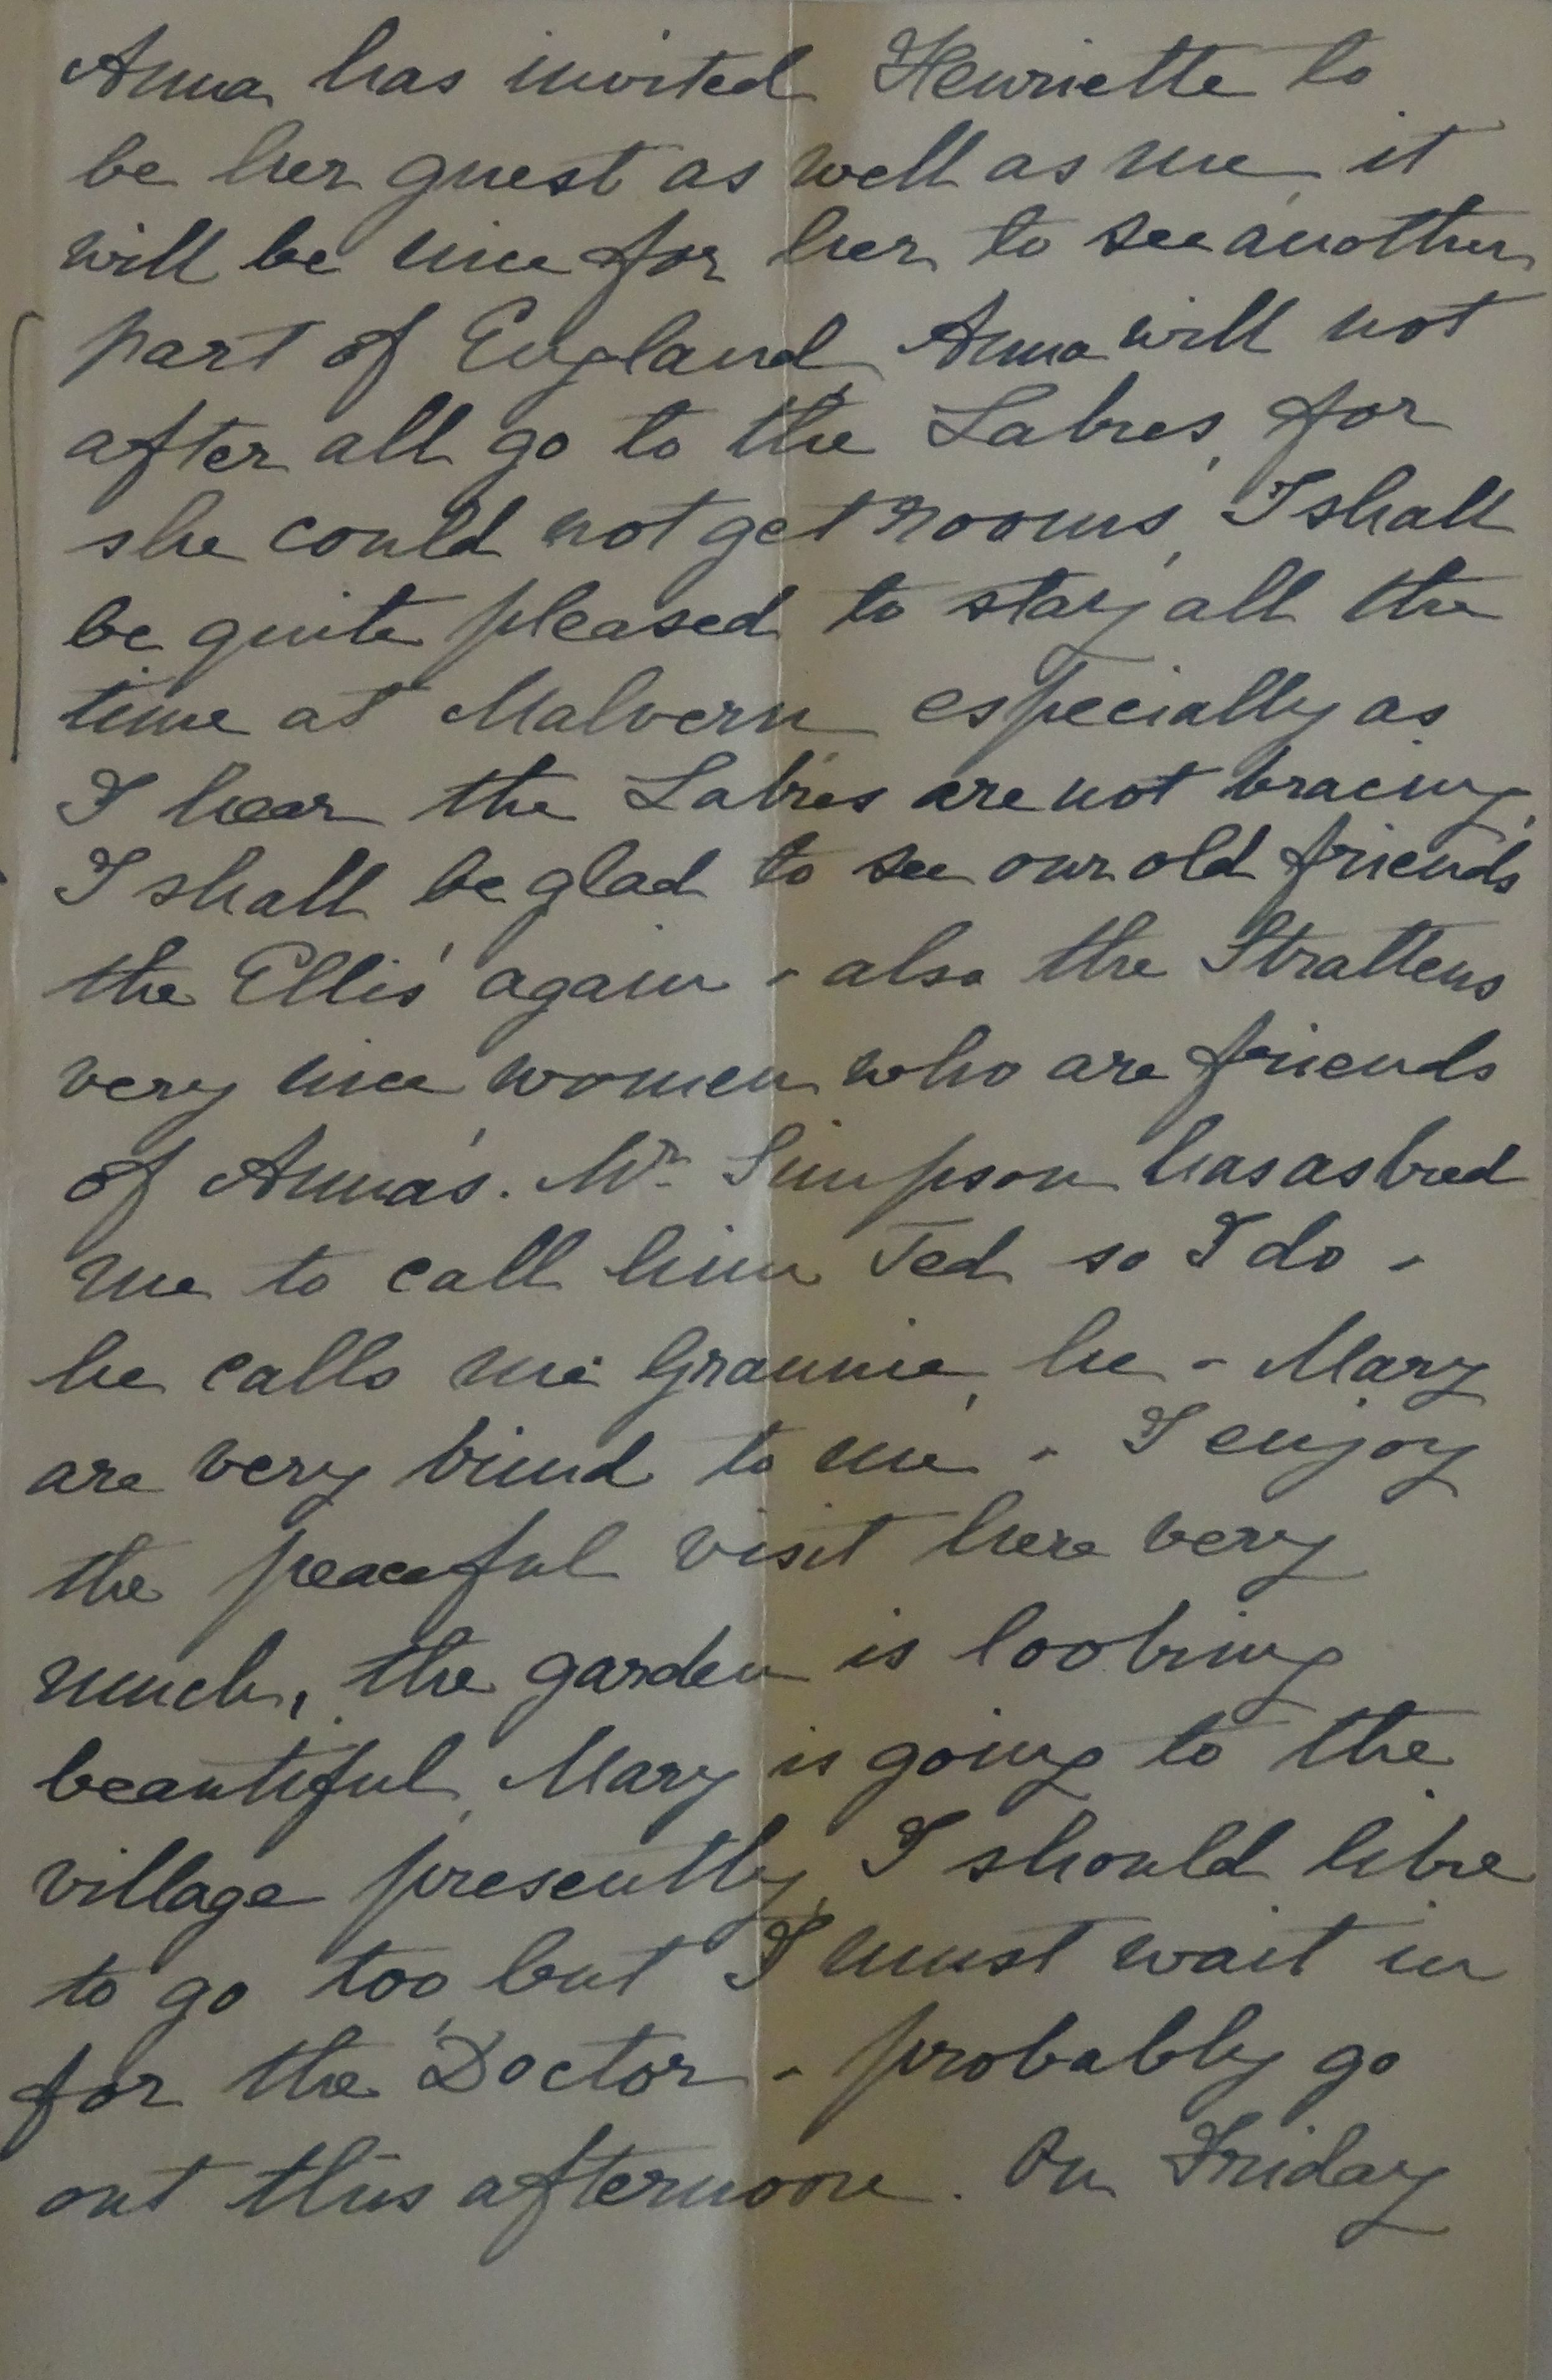 Anna has invited Henriette to
be her guest as well as me, it
will be nice for her to see another
part of England, Anna will not
after all go to the Lakes, for
she could not get rooms, I shall
be quite pleased to stay all the
time at Malvern especially as
I hear the Lakes are not bracing,
I shall be glad to see our old friends
the Ellis' again - also the Strattens
very nice women who are friends
of Anna's. Mr. Simpson has asked
me to call him Ted so I do -
he calls me Grannie, he - Mary
are very kind to me - I enjoy
the peaceful visit here very
much, the garden is looking
beautiful, Mary is going to the
village presently, I should like
to go too, but I must wait in
for the Doctor - probably go
out this afternoon. On Friday